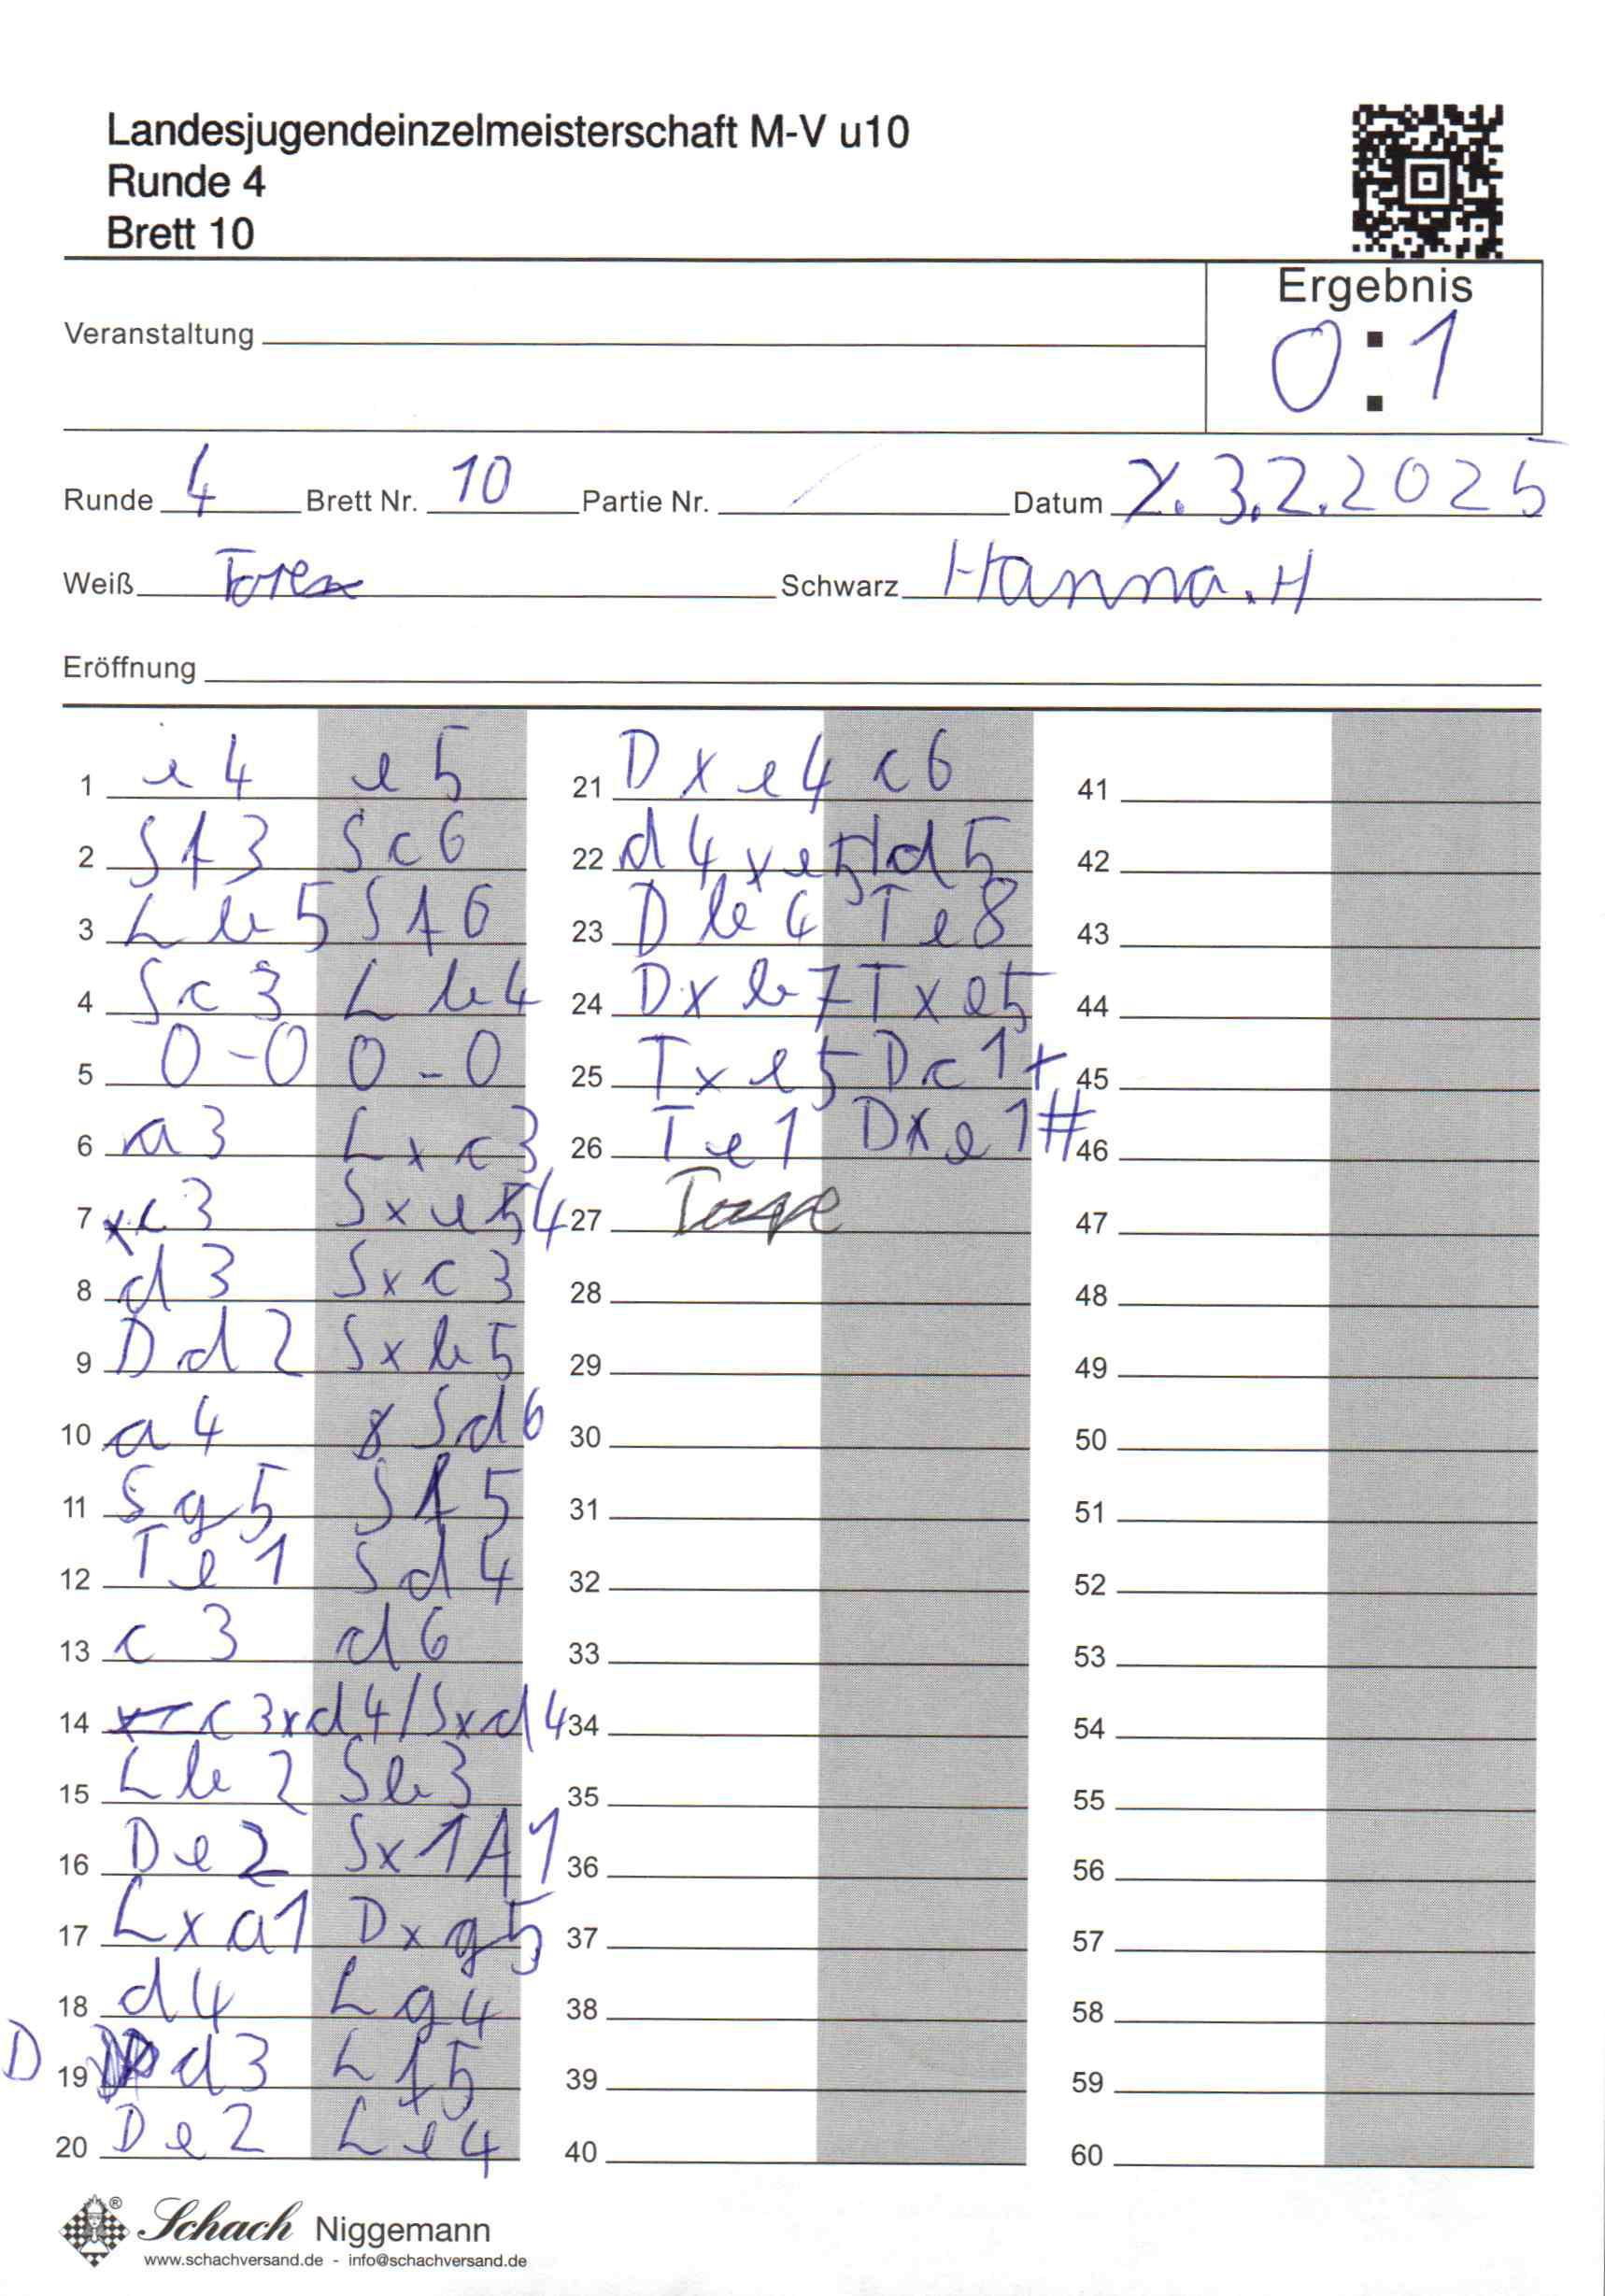 Landesjugendeinzelmeisterschaft M-V u10
Runde 4
Brett 10
Ergebnis
0:1
Veranstaltung
Runde 4 Brett Nr. 10 Partie Nr. Datum 3.2.2025
Weiß Schwarz Hanna.H
Eröffnung
1 e4 e5
2 Sf3 Sc6
3 Lb5 Sf6
4 Sc3 Lb4
5 0-0 0-0
6 a3 Lxc3
7 xc3 Sxe4
8 d3 Sxc3
9 Dd2 Sxb5
10 a4 Sd6
11 Sg5 Sf5
12 Te1 Sd4
13 c3 d6
14 c3xd4/Sxd4
15 Lb2 Sb3
16 De2 Sx1A1
17 Lxa1 Dxg5
18 d4 Lg4
19 Dd3 Lf5
20 De2 Le4
21 Dxe4 c6
22 d4xe5/d5
23 Db4 Te8
24 Dxb7 Txe5
25 Txe5 Dc1+
26 Te1 Dxe1#
27
28
29
30
31
32
33
34
35
36
37
38
39
40
41
42
43
44
45
46
47
48
49
50
51
52
53
54
55
56
57
58
59
60
Schach Niggemann
www.schachversand.de - info@schachversand.de